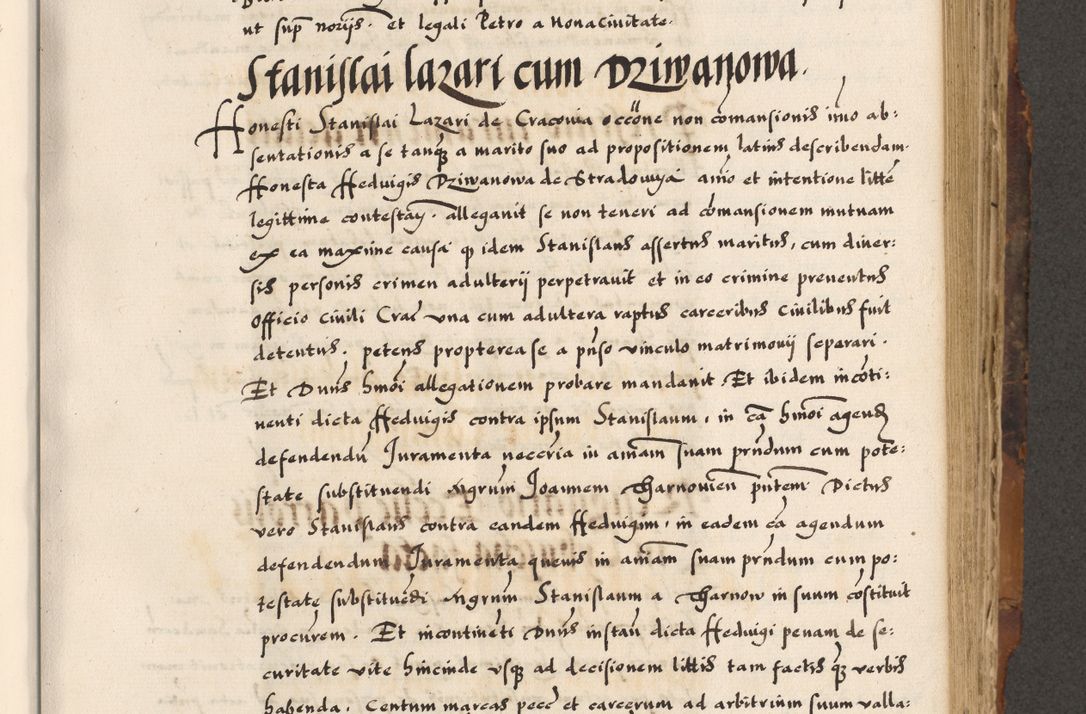 ut sup norijs . et legali Petro a Nonacivitate .
Stanislai lazari cum Dziwanowa .
Honesti Stanislai Lazari de Cracovia occõne non comansionis imo ab:
sentationis a se tanq̃ a marito suo ad propositionem latius describendam .
Honesta Hedvigis Dziwanowa de Stradomya aĩo et intentione littẽ
legittime contestaṅ . alleganit se non teneri ad cõmansionem mutuam
ex ea maxime causa q idem Stanislaus assertus maritus , cum diver:
sis personis crimen adulterij perpetravit et in eo crimine preventus
officio civili Crac̃ una cum adultera raptus carceribus civilibus fuit
detentus . petens propterea se a pñso vinculo matrimonij seperari .
Et Dñus hmõi allegationem probare mandavit . Et ibidem incõti:
nenti dicta Hedvigis contra ipsum Stanislaum , in cã hmõi agend
defendendũ Juramenta neccria in aĩam suam prñdum cum pote:
state substituendi Mgrum Joannem Tharnovien pñtem Dictus
vero Stanislaus contra eandem Hedvigim , in eadem cã agendum
defendendum Juramenta quevis in aĩam suam prñdum cum po:
testate substituẽdi Mgrum Stanislaum a Tharnow in suum cõstituit
procurem . Et incontinẽti Dñus instañ dicta Hedvigi penam de se:
curitate vite hincinde usq̃ ad decisionem littis tam factis q̃ verbis
habenda . Centum marcas pecc̃ et carcerum ad arbitrium suum valla: